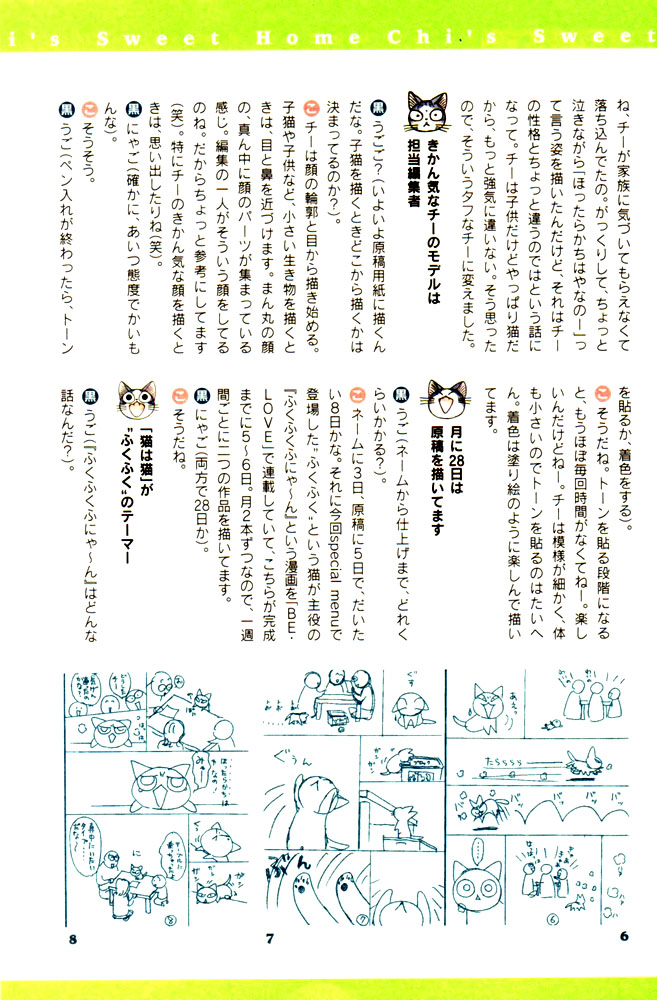 i's Sweet Home Chi's Sweet
ね、チーが家族に気づいてもらえなくて
落ち込んでたの。がっくりして、ちょっと
泣きながら「ほったらかちはやなのー」っ
て言う姿を描いたんだけど、それはチー
の性格とちょっと違うのではという話に
なって。チーは子供だけどやっぱり猫だ
から、もっと強気に違いない。そう思った
ので、そういうタフなチーに変えました。
きかん気なチーのモデルは
担当編集者
黒 うごご?(いよいよ原稿用紙に描くん
だな。子猫を描くときどこから描くかは
決まってるのか?)。
こ チーは顔の輪郭と目から描き始める。
子猫や子供など、小さい生き物を描くと
きは、目と鼻を近づけます。まん丸の顔
の、真ん中に顔のパーツが集まっている
感じ。編集の一人がそういう顔をしてる
のね。だからちょっと参考にしてます
(笑)。特にチーのきかん気な顔を描くと
きは、思い出したりね(笑)。
黒 にゃご(確かに、あいつ態度でかいも
んな)。
こ そうそう。
黒 うご(ペン入れが終わったら、トーン
を貼るか、着色をする)。
こ そうだね。トーンを貼る段階になる
と、もうほぼ毎回時間がなくてねー。楽し
いんだけどねー。チーは模様が細かく、体
も小さいのでトーンを貼るのはたいへ
ん。着色は塗り絵のように楽しんで描い
てます。
月に28日は
原稿を描いてます
黒 うご(ネームから仕上げまで、どれく
らいかかる?)。
こ ネームに3日、原稿に5日で、だいた
い8日かな。それに今回special menuで
登場した“ふくふく”という猫が主役の
『ふくふくふにゃ〜ん』という漫画を「BE・
LOVE」で連載していて、こちらが完成
までに5〜6日。月2本ずつなので、一週
間ごとに二つの作品を描いてます。
黒 にゃご(両方で28日か)。
こ そうだね。
「猫は猫」が
“ふくふく”のテーマー
黒 うご(『ふくふくふにゃ〜ん』はどんな
話なんだ?)。
たららららら
バッ
バッ
バッ
⑥
ぐぅん
ぶん
⑦
ほったらかちは
やなのー
みゃー
に
⑧
8
7
6